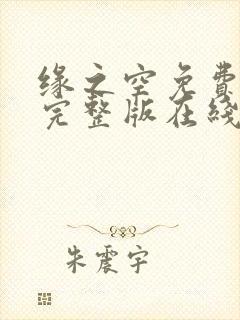 缘之空免费
完整版在线
朱震宇